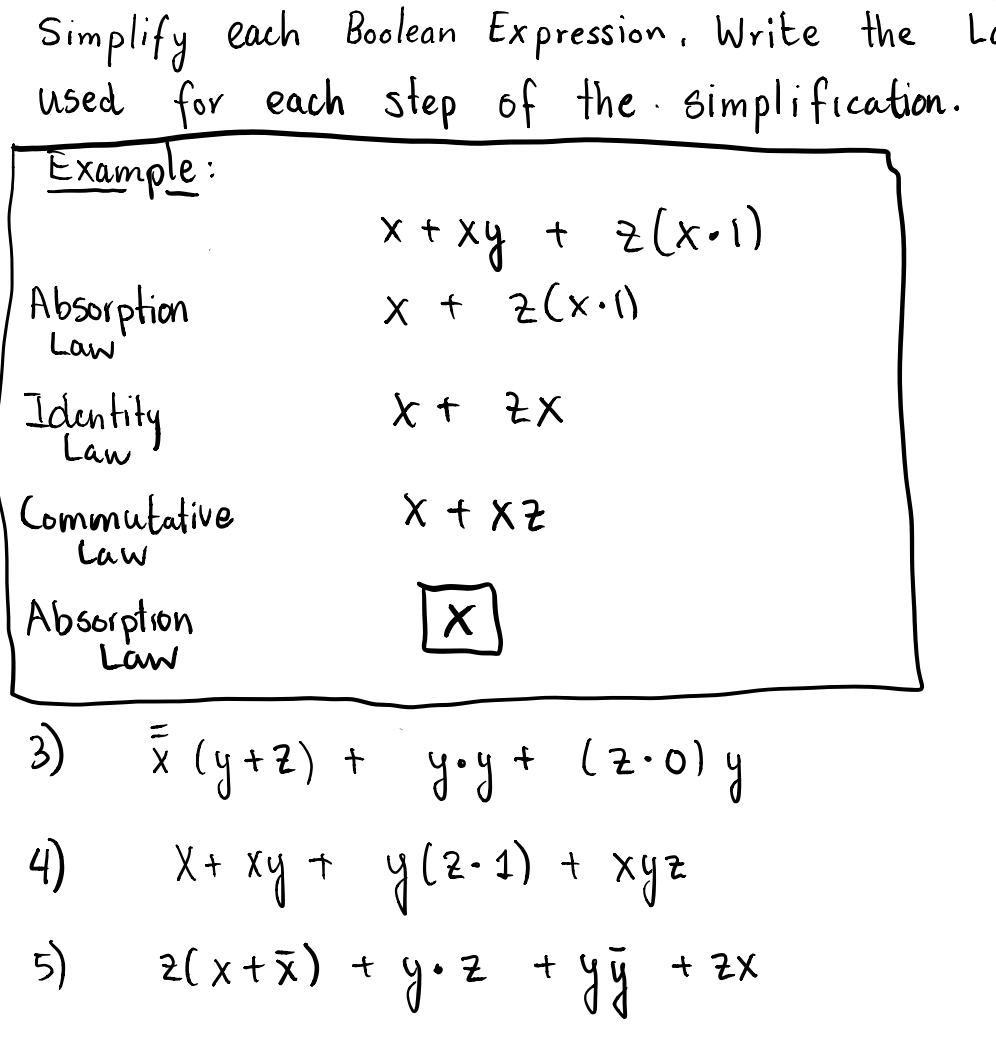 Simplify each Boolean Expression. Write the
used for each step of the simplification.
Example:
x + xy + z(x·1)
Absorption Law x + z(x·1)
Identity Law x + zx
Commutative Law x + xz
Absorption Law x
3) x̿ (y+z) + y·y + (z·0) y
4) x + xy + y(z·1) + xyz
5) z(x+x̄) + y·z + yȳ + zx